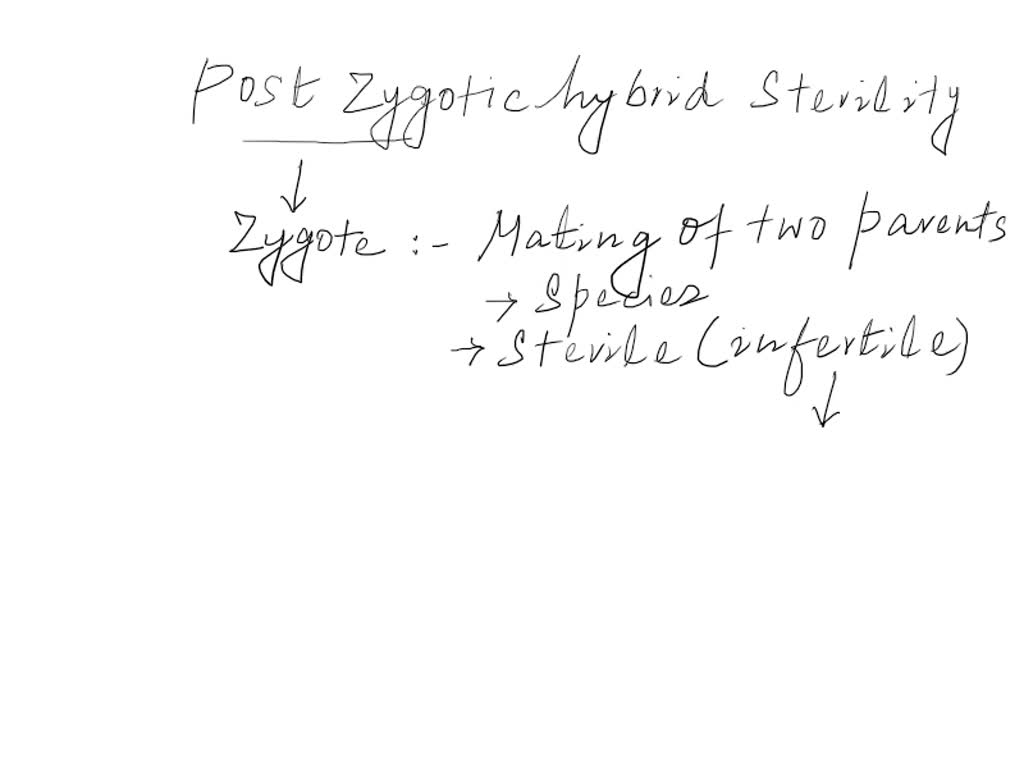 Post Zygotic hybrid Sterility
Zygote :- Mating of two parents
→ Species
→ Sterile (infertile)